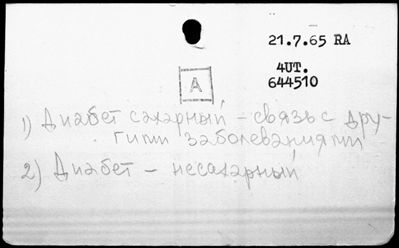 21.7.65 RA
4UT.
644510
A
1) Диабет сахарный – связь с дру-
гими заболеваниями
2) Диабет – несахарный